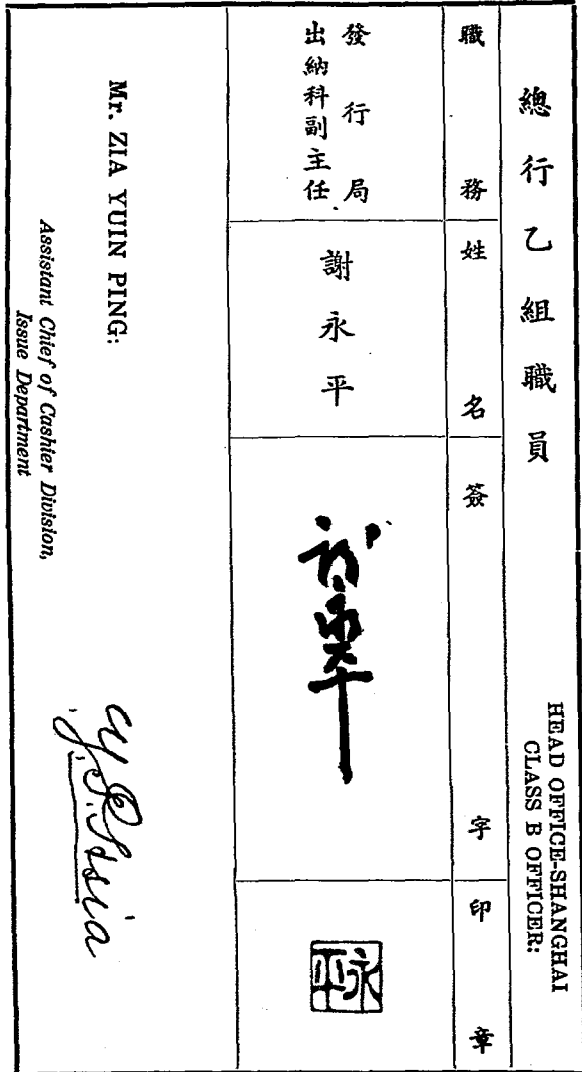 總行乙組職員
HEAD OFFICE-SHANGHAI
CLASS B OFFICER:
職務
姓名
簽字
印章
發行局
出納科副主任
謝永平
謝永平
永平
Mr. ZIA YUIN PING:
Assistant Chief of Cashier Division,
Issue Department